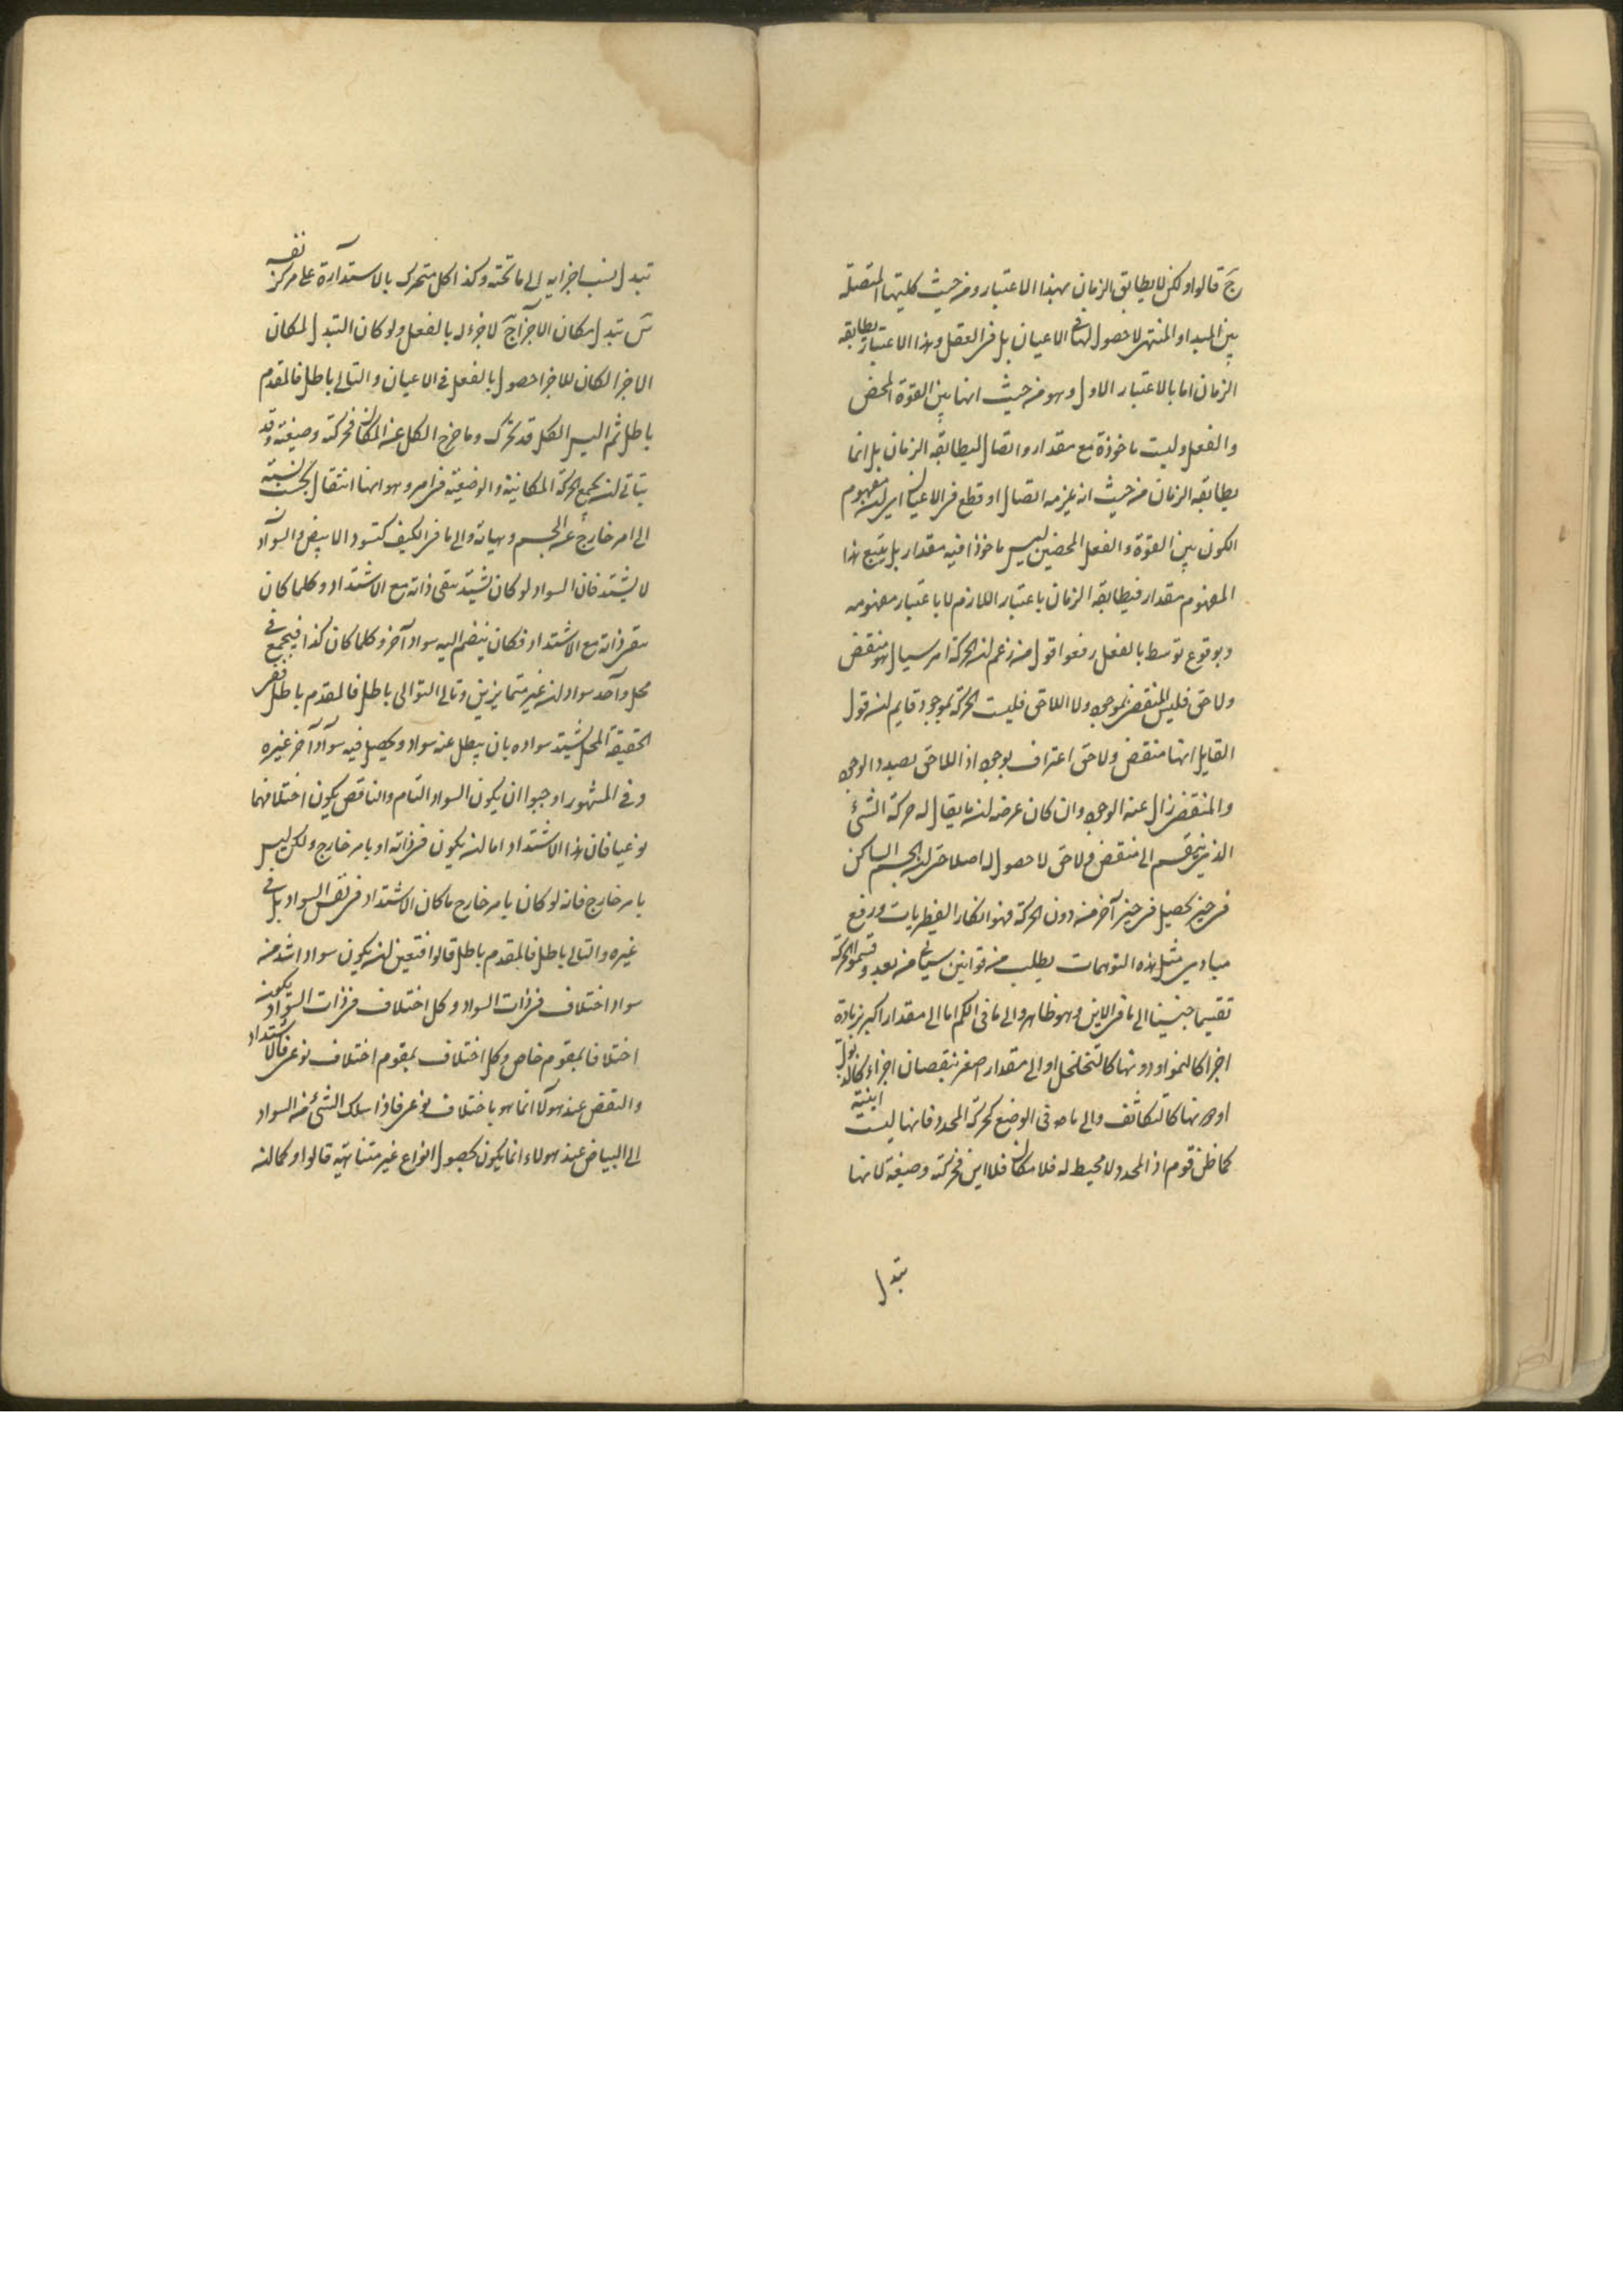 ج قالوا ولكن لا يطابق الزمان بهذا الاعتبار ومن حيث كليتها المتصلة
بين المبدا والمنتهى لا حصول لها في الاعيان بل في العقل وبهذا الاعتبار يطابقه
الزمان اما بالاعتبار الاول وهو من حيث انها بين القوة المحض
والفعل وليست ماخوذة مع مقدار واتصال ليطابقه الزمان بل انما
يطابقه الزمان من حيث انه يلزمه اتصال او قطع في الاعيان اي ان مفهوم
الكون بين القوة والفعل المحضين ليس ماخوذا فيه مقدار بل يتبع هذا
المفهوم مقدار فيطابقه الزمان باعتبار اللازم لا باعتبار مفهومه
وبوقوع توسط بالفعل رفعوا قول من زعم ان الحركة امر سيال هو منقض
ولاحق فليس المنقضي بموجود ولا اللاحق فليست الحركة بموجود قايم ان قول
القايل انها منقض ولاحق اعتراف بوجود اذ اللاحق بصدد الوجود
والمنقضي زال عنه الوجود وان كان غرضه ان ما يقال له حركة الشئ
الذي ينقسم الى منقض ولاحق لا حصول له اصلا حتى ان الجسم الساكن
في حيز يحصل في حيز آخر من دون الحركة فهو انكار الفطريات ورفع
مبادي مثل هذه التوهمات يطلب من قوانين سياتي من بعد وقسموا الحركة
تقسيما جنسيا الى ما في الاين وهو ظاهر والى ما في الكم اما الى مقدار اكبر بزيادة
اجزا كالنمو او دونها كالتخلخل او الى مقدار اصغر بنقصان اجزاء كالذبول
او دونها كالتكاثف والى ما هو في الوضع كحركة المحدد فانها ليست اينية
كما ظن قوم اذ المحدد لا محيط له فلا مكان فلا اين فحركته وضيعة لانها
تبدل
تبدل نسب اجزايه الى ما تحته وكذا كل متحرك بالاستدارة على مركز نفسه
س تبدل مكان الاجزا ج لا جزء له بالفعل ولو كان التبدل لمكان
الاجزا لكان للاجزا حصول بالفعل في الاعيان والتالى باطل فالمقدم
باطل ثم اليس الكل قد تحرك وما خرج الكل عن المكان فحركته وضيعة وقد
يتاتى ان يجمع الحركة المكانية والوضعية في امر وهو انها انتقال بحسب نسبته
الى امر خارج عن الجسم وهيأته والى ما في الكيف كتسود الابيض والسواد
لا يشتد فان السواد لو كان يشتد تبقى ذاته مع الاشتداد وكلما كان
تبقى ذاته مع الاشتداد فكان ينضم اليه سواد آخر وكلما كان كذا فيجمع في
محل واحد سوادان غير متمايزين وتالى التوالى باطل فالمقدم باطل ففى
الحقيقة المحل يشتد سواده بان يبطل عنه سواد ويحصل فيه سواد آخر غيره
وفي المشهور اوجبوا ان يكون السواد التام والناقص يكون اختلافهما
نوعيا فان هذا الاشتداد اما ان يكون في ذاته او بامر خارج ولكن ليس
بامر خارج فانه لو كان بامر خارج ما كان الاشتداد في نفس السواد بل في
غيره والتالى باطل فالمقدم باطل قالوا فتعين ان يكون سواد اشد من
سواد اختلاف في ذات السواد وكل اختلاف في ذات السواد يكون
اختلافا بمقوم خاص وكل اختلاف بمقوم اختلاف نوعي فالاشتداد
والنقص عند هولآ انما هو باختلاف نوعي فاذا سلك الشئ من السواد
الى البياض عند هولاء انما يكون بحصول انواع غير متناهية قالوا وكما ان